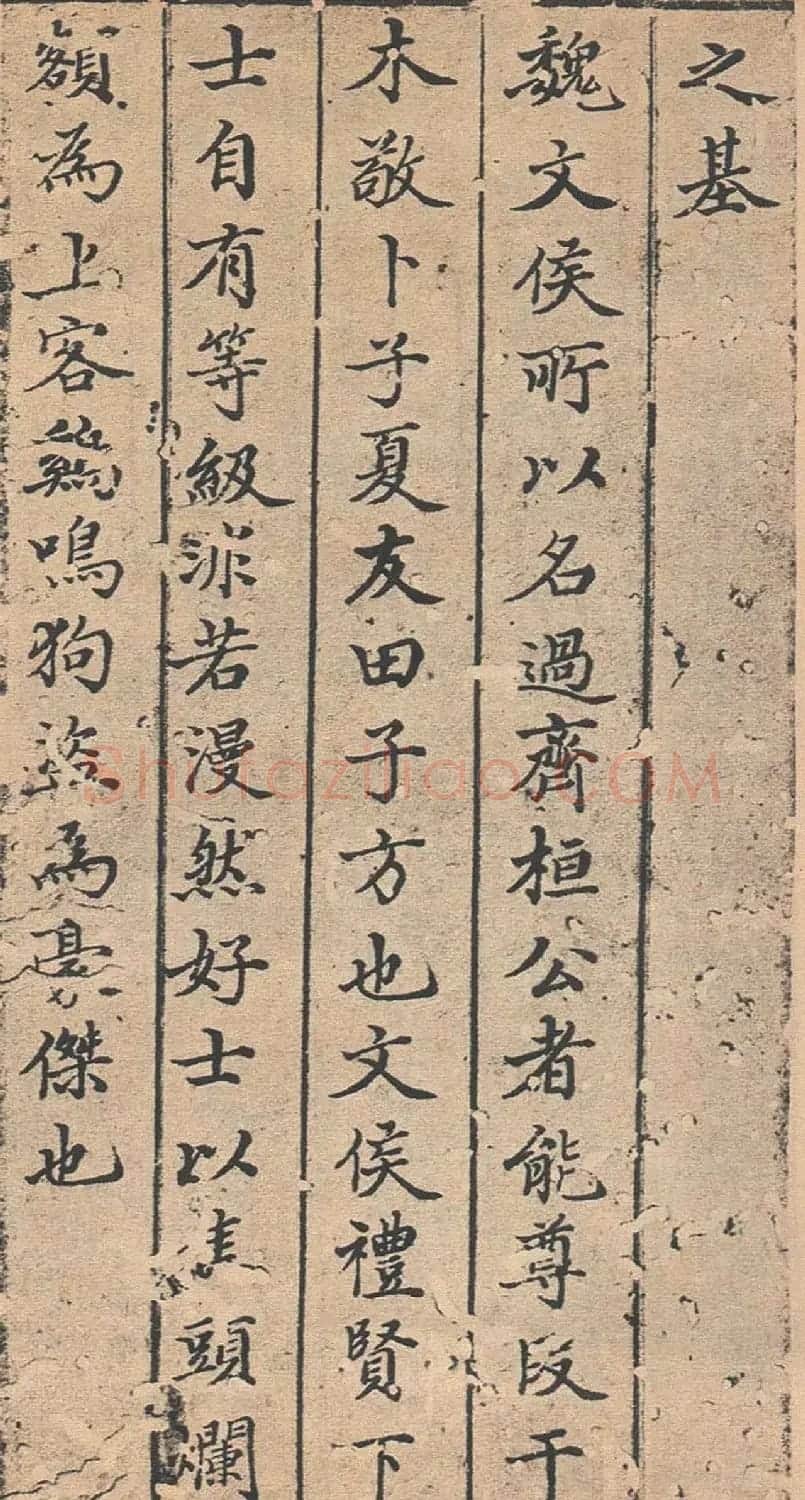 之基
魏文侯所以名過齊桓公者能尊段干
木敬卜子夏友田子方也文侯禮賢下
士自有等級非若漫然好士以焦頭爛
額為上客鷄鳴狗盜為豪傑也
shufaziliao.COM